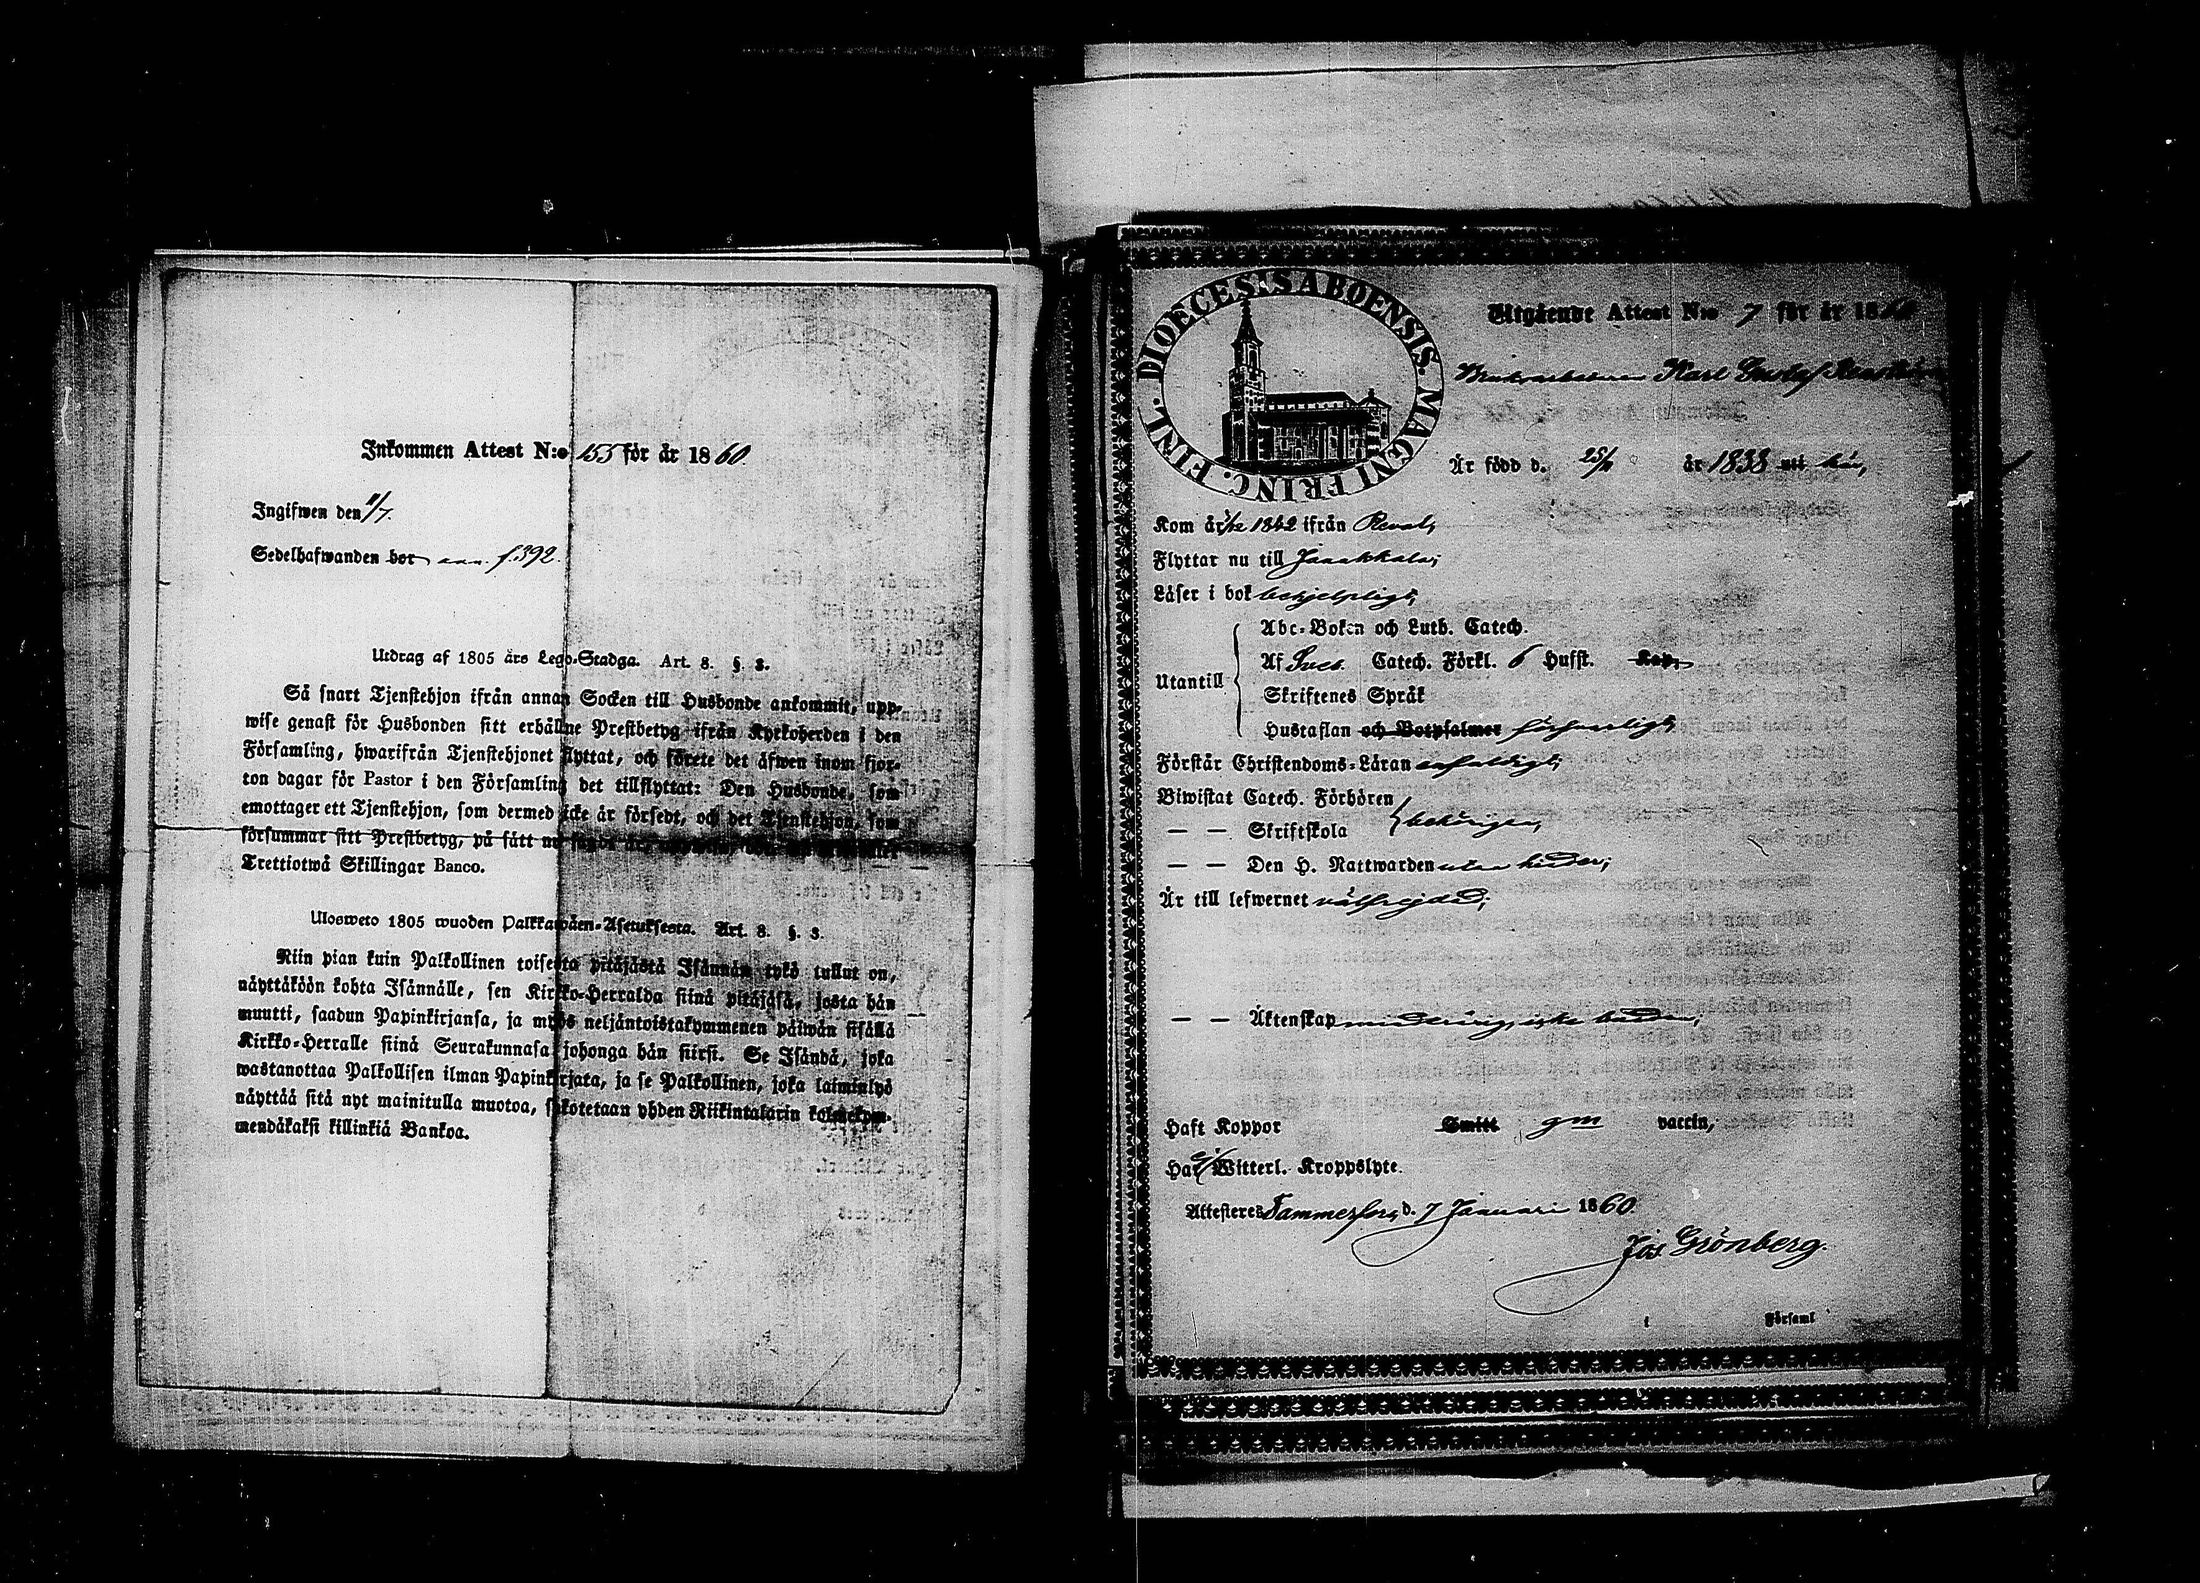 Inkommen Attest N:o 155 för år 1860.
Ingifwen den 11/7.
Sedelhafwanden bor ann. f. 392.
Utdrag af 1805 års Lego-Stadga. Art. 8. §. 3.
Så snart Tjenstehjon ifrån annan Socken till Husbonde ankommit, upp-
wise genast för Husbonden sitt erhållne Prestbetyg ifrån Kyrkoherden i den
Församling, hwarifrån Tjenstehjonet flyttat, och förete det äfwen inom fjor-
ton dagar för Pastor i den Församling det tillflyttat: Den Husbonde, som
emottager ett Tjenstehjon, som dermed icke är försedt, och det Tjenstehjon, som
försummar sitt Prestbetyg, på sätt nu
Trettiotwå Skillingar Banco.
Ulosweto 1805 wuoden Palkkawäen-Asetuksesta. Art. 8. §. 3.
Niin pian kuin Palkollinen toisesta pitäjästä Isännän tykö tullut on,
näyttäköön kohta Isännälle, sen Kirkko-Herralda siinä pitäjäsä, josta hän
muutti, saadun Papinkirjansa, ja myös neljäntoistakymmenen päiwän sisällä
Kirkko-Herralle siinä Seurakunnasa johonga hän siirsi. Se Isändä, joka
wastanottaa Palkollisen ilman Papinkirjata, ja se Palkollinen, joka laiminlyö
näyttää sitä nyt mainitulla muotoa, sakotetaan yhden Riikintalarin kolmekym-
mendäkaksi killinkiä Bankoa.
DIOECESIS ABOENSIS. MAGNI PRINC. FINL.
Utgående Attest N:o 7 för år 1860
Karl Gustaf
Är född d. 25/ år 1838 uti här,
Kom år 1842 ifrån Reval,
Flyttar nu till Janakkala;
Läser i bok behjelpligt;
Abc-Boken och Luth. Catech.
Utantill Af Sveb. Catech. Förkl. 6 Hufst. Kap.
Skriftenes Språk
Hustaflan och Botpsalmer försvarligt;
Förstår Christendoms-Läran enfaldigt;
Biwistat Catech. Förhören
— — Skriftskola behörigen;
— — Den H. Nattwarden utan hinder;
Är till lefwernet välfrejdad;
— — Äktenskap minderårig, icke bunden;
Haft Koppor Smitt gm vaccin,
Har ej Witterl. Kroppslyte.
Attesteres Tammerfors, d. 7 Januari 1860.
Jos. Grönberg.
i Församl